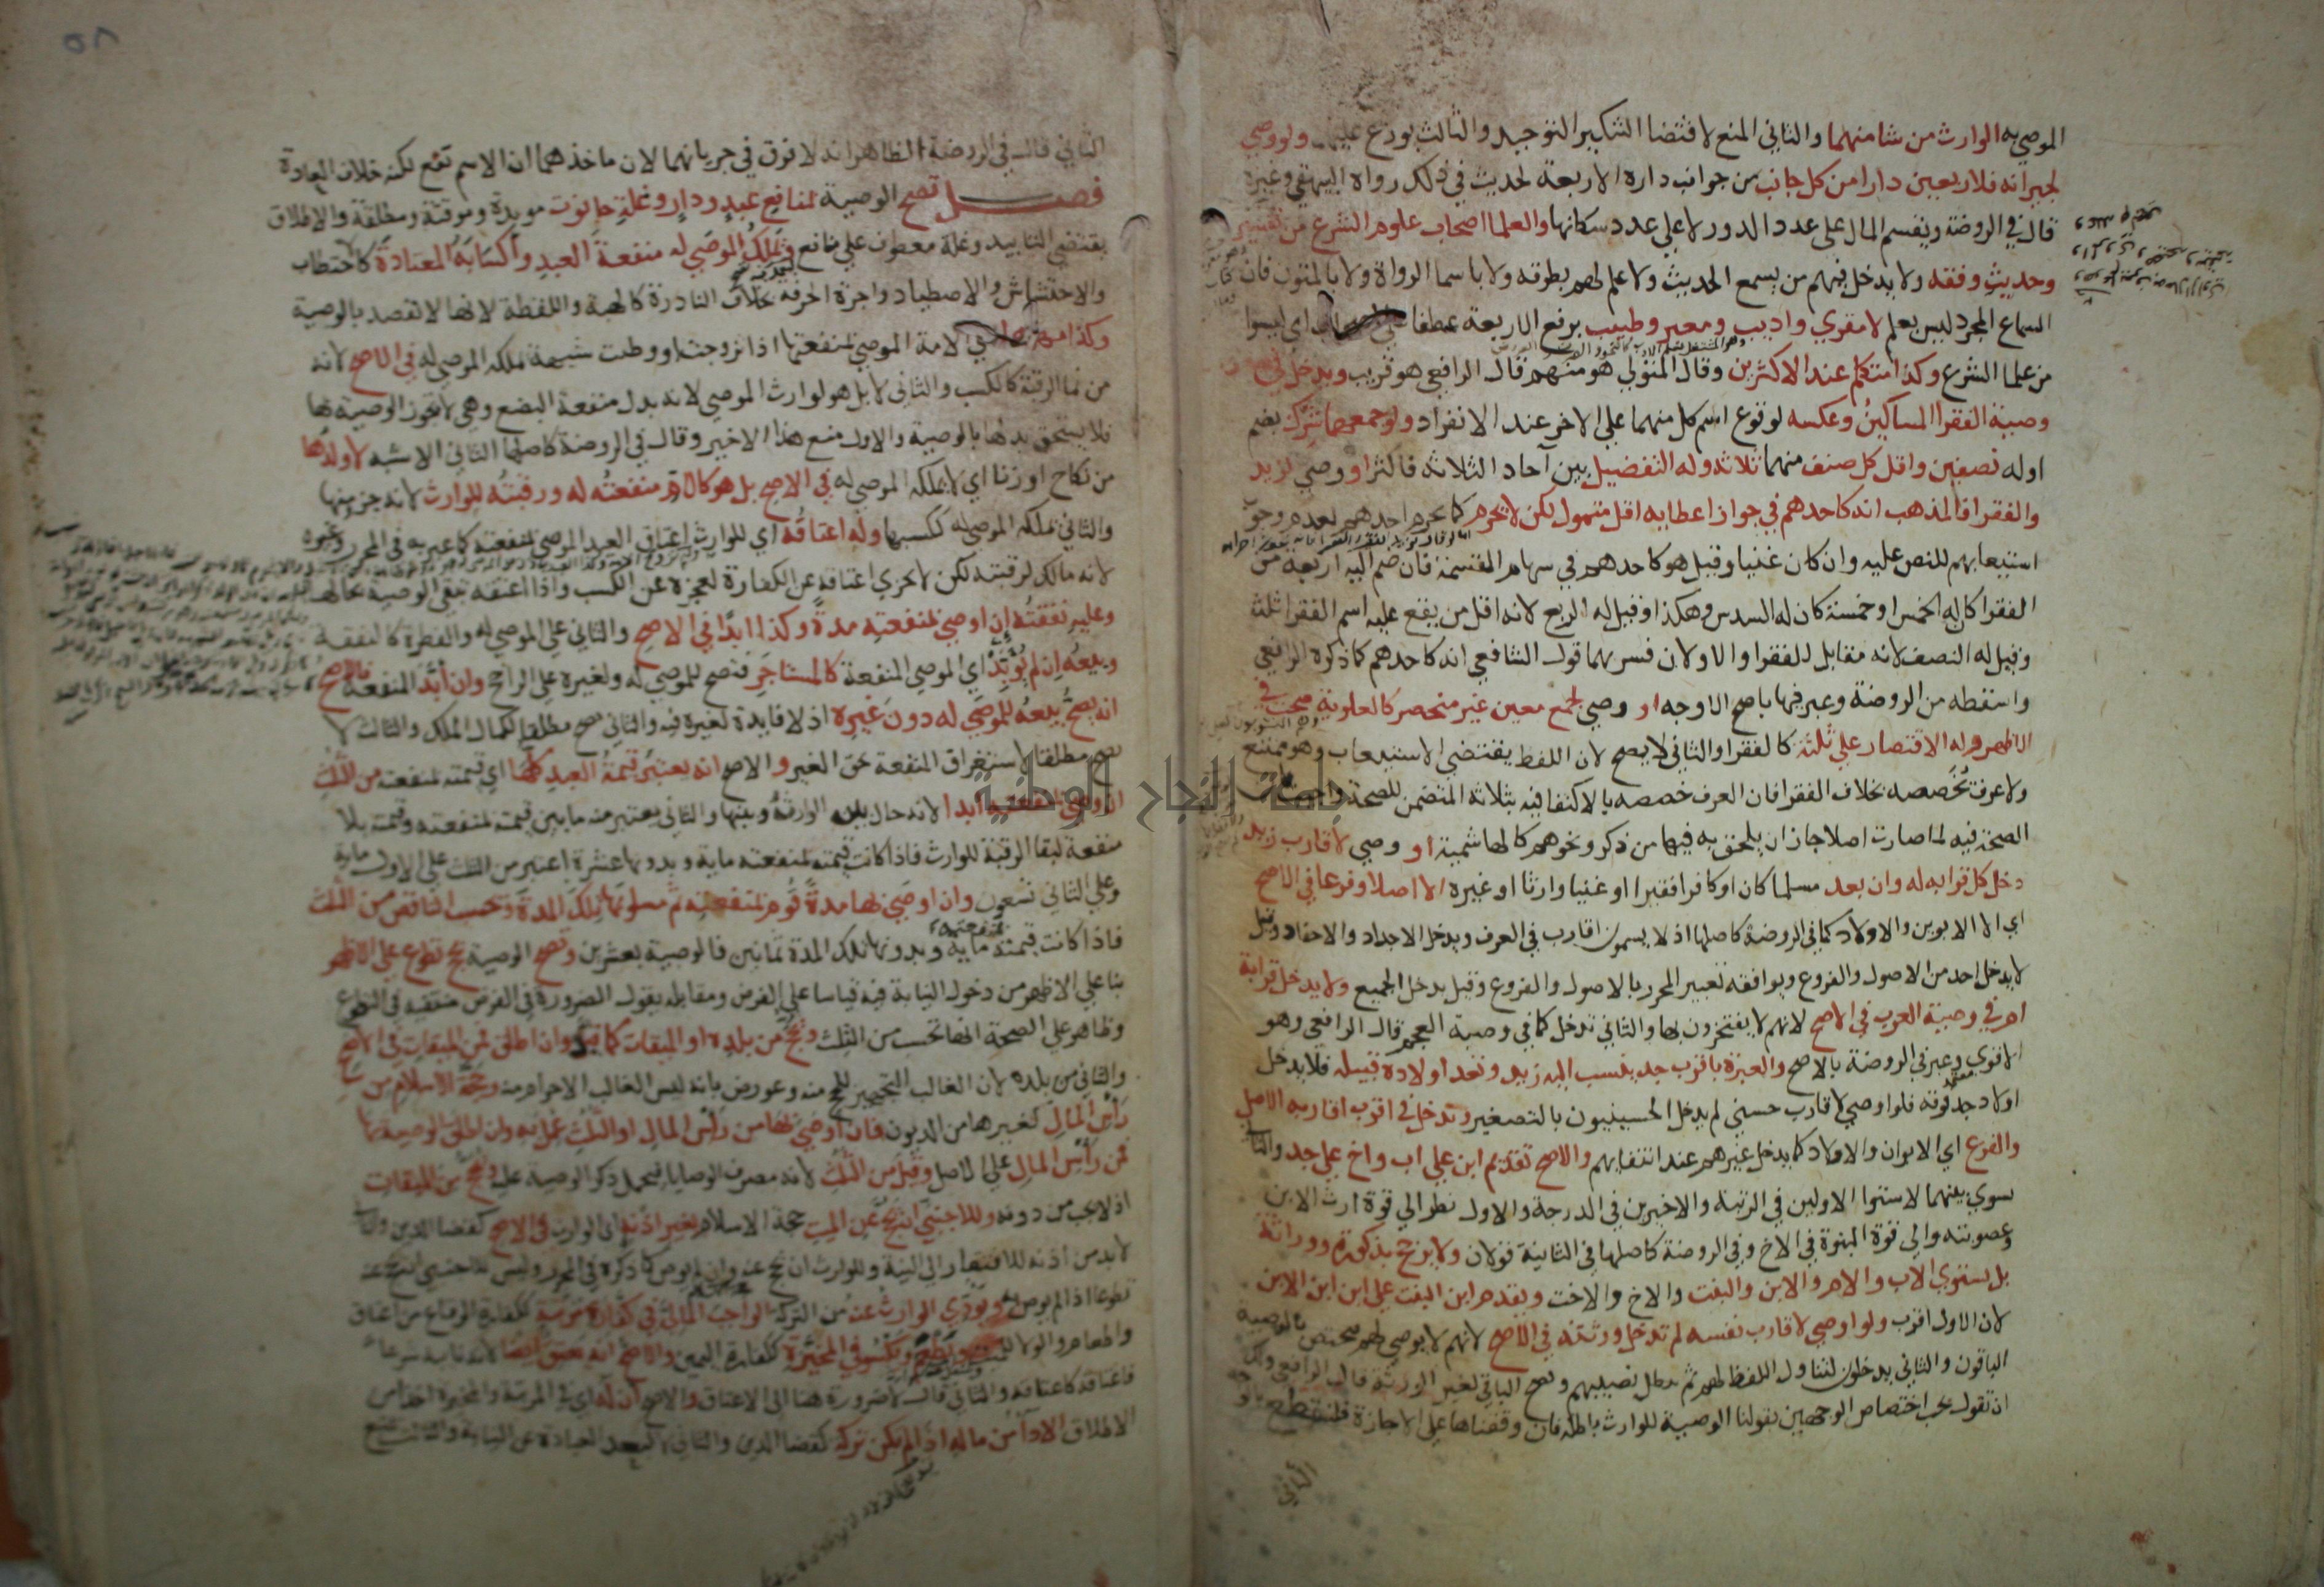 الموصي به الوارث من شا منهما والثاني المنع لاقتضا التنكير التوحيد والثالث يوزع عليهما ولو وصي
لجيرانه فلاربعين دارا من كل جانب من جوانب داره الاربعة لحديث في ذلك رواه البيهقي وغيره
قال في الروضة ويقسم المال على عدد الدور لا على عدد سكانها والعلما اصحاب علوم الشرع من تفسير
وحديث وفقه ولا يدخل فيهم من يسمع الحديث ولا علم لهم بطرقه ولا باسما الرواة ولا بالمتون فان
السماع المجرد ليس بعلم لا مقري واديب ومعبر وطبيب برفع الاربعة عطفا على اي ليسوا
من علما الشرع وكذا متكلم عند الاكثرين وقال المتولي هو منهم قال الرافعي هو قريب ويدخل في
وصية الفقرا المساكين وعكسه لوقوع اسم كل منهما على الاخر عند الانفراد ولو جمعهما شرك بضم
اوله نصفين واقل كل صنف منهما ثلاثة وله التفضيل بين آحاد الثلاثة فاكثر او وصي لزيد
والفقرا فالمذهب انه كاحدهم في جواز اعطايه اقل متمول لكن لا يحرم كما يحرم احدهم لعدم وجوب
استيعابهم للنص عليه وان كان غنيا وقيل هو كاحدهم في سهام القسمة فان ضم اليه اربعة من
الفقرا كان له الخمس او خمسة كان له السدس وهكذا وقيل له الربع لانه اقل من يقع عليه اسم الفقرا ثلثة
وقيل له النصف لانه مقابل للفقرا والاولان فسر بهما قول الشافعي انه كاحدهم كما ذكره الرافعي
واسقطه من الروضة وعبر فيها باصح الاوجه او وصي لجمع معين غير منحصر كالعلوية صحت في
الاظهر وله الاقتصار على ثلثة كالفقرا والثاني لا يصح لان اللفظ يقتضي الاستيعاب وهو ممتنع
ولا عرف يخصصه بخلاف الفقرا فان العرف خصصه بالاكتفا فيه بثلاثة المتضمن للصحة
الصحة فيه لما صارت اصلا جاز ان يلحق به فيها من ذكر ونحوهم كالهاشمية او وصي لاقارب زيد
دخل كل قرابة له وان بعد مسلما كان او كافرا فقيرا او غنيا وارثا او غيره الا اصلا وفرعا في الاصح
اي الا الابوين والاولاد كما في الروضة كاصلها اذ لا يسمون اقارب في العرف ويدخل الاجداد والاحفاد وقيل
لا يدخل احد من الاصول والفروع ويوافقه تعبير المحرر بالاصول والفروع وقيل يدخل الجميع ولا يدخل قرابة
ام في وصية العرب في الاصح لانهم لا يفتخرون بها والثاني تدخل كما في وصية العجم قال الرافعي وهو
الاقوى وعبر في الروضة بالاصح والعبرة باقرب جد ينسب اليه زيد وتعد اولاده قبيلة فلا يدخل
اولاد جد فوقه فلو اوصي لاقارب حسني لم يدخل الحسينيون بالتصغير وتدخل في اقرب اقاربه الاصل
والفرع اي الابوان والاولاد كما يدخل غيرهم عند انتفايهم والاصح تقديم ابن على اب واخ على جد والثاني
يسوي بينهما لاستوا الاولين في الرتبة والاخيرين في الدرجة والاول نظر الى قوة ارث الابن
وعصوبته والى قوة البنوة في الاخ وفي الروضة كاصلها في الثانية قولان ولا يرجح بذكورة ووراثة
بل يستوي الاب والام والابن والبنت والاخ والاخت ويقدم ابن البنت على ابن ابن الابن
لان الاول اقرب ولو اوصي لاقارب نفسه لم تدخل ورثته في الاصح لانهم لا يوصي لهم فتختص بالوصية
الباقون والثاني يدخلون لتناول اللفظ لهم ثم يبطل نصيبهم ويصح الباقي لغير الورثة قال الرافعي ولك
ان تقول يجب اختصاص الوجهين بقولنا الوصية للوارث باطلة فان وقفناها على الاجازة فلنقطع
الثاني
الثاني قال في الروضة الظاهر انه لا فرق في جريانهما لان ماخذهما ان الاسم يقع لكنه خلاف العادة
فصل تصح الوصية بمنافع عبد ودار وغلة حانوت موبدة وموقتة ومطلقة والاطلاق
يقتضي التابيد وغلة معطوف على منافع ويملك الموصى له منفعة العبد واكسابه المعتادة كاحتطاب
والاحتشاش والاصطياد واجرة الحرفة بخلاف النادرة كالهبة واللقطة لانها لا تقصد بالوصية
وكذا مهرها اي الامة الموصي بمنفعتها اذا تزوجت او وطئت بشبهة يملكه الموصي له في الاصح لانه
من نما الرقبة كالكسب والثاني لا بل هو لوارث الموصي لانه بدل منفعة البضع وهي لا تجوز الوصية بها
فلا يستحق بدلها بالوصية والاول منع هذا الاخير وقال في الروضة كاصلها الثاني الاشبه لا ولدها
من نكاح او زنا اي لا يملكه الموصي له في الاصح بل هو كالام منفعته له ورقبته للوارث لانه جزء منها
والثاني يملكه الموصي له ككسبها وله اعتاقه اي للوارث اعتاق العبد الموصي بمنفعته كما عبر به في المحرر وغيره
لانه مالك لرقبته لكن لا يجزي اعتاقه عن الكفارة لعجزه عن الكسب واذا اعتقه تبقى الوصية بحالها
وعليه نفقته ان اوصي بمنفعته مدة وكذا ابدا في الاصح والثاني على الموصي له والفطرة كالنفقة
وبيعه ان لم يؤبد اي الموصي المنفعة كالمستاجر فتصح للموصي له ولغيره على الراجح وان ابد المنفعة فالاصح
انه يصح بيعه للموصى له دون غيره اذ لا فايدة لغيره فيه والثاني يصح مطلقا لكمال الملك والثالث لا
يصح مطلقا لاستغراق المنفعة بحق الغير والاصح انه يعتبر قيمة العبد كلها اي قيمته بمنفعته من الثلث
ان اوصى بمنفعته ابدا لانه حال بين الوارث وبينها والثاني يعتبر منه ما بين قيمته بمنفعته وقيمته بلا
منفعة لبقا الرقبة للوارث فاذا كانت قيمته بمنفعته ماية وبدونها عشرة اعتبر من الثلث على الاول ماية
وعلى الثاني تسعون وان اوصى بها مدة قوم بمنفعته ثم مسلوبها تلك المدة وتحسب الناقص من الثلث
فاذا كانت قيمته بمنفعته ماية وبدونها تلك المدة ثمانين فالوصية بعشرين وتصح الوصية بحج تطوع على الاظهر
بنا على الاظهر من دخول النيابة فيه قياسا على الفرض ومقابله يقول الضرورة في الفرض منتفية في التطوع
وظاهر على الصحة انها تحسب من الثلث ويحج من بلده او الميقات كما قيد وان اطلق فمن الميقات في الاصح
والثاني من بلده لان الغالب التجهيز للحج منه وعورض بانه ليس الغالب الاحرام منه وحجة الاسلام من
رأس المال كغيرها من الديون فان اوصى بها من رأس المال او الثلث عمل به وان اطلق الوصية بها
فمن رأس المال على الاصل وقيل من الثلث لانه مصرف الوصايا فيحمل ذكر الوصية عليه ويحج من الميقات
اذ لا يجب من دونه وللاجنبي ان يحج عن الميت حجة الاسلام بغير اذنه اي الوارث في الاصح كقضا الدين والثاني
لا بد من اذنه للافتقار الى النية وللوارث ان يحج عنه وان لم يوص كما ذكره في المحرر وليس للاجنبي الحج عنه
تطوعا اذا لم يوص به ويؤدي الوارث عنه من التركة الواجب المالي في كفارة مرتبة ككفارة الوقاع من اعتاق
واطعام والولا للميت ويطعم ويكسو في المخيرة ككفارة اليمين والاصح انه يعتق ايضا لانه نايبه شرعا
فاعتاقه كاعتاقه والثاني قال لا ضرورة هنا الى الاعتاق والاصح ان له اي في المرتبة والمخيرة اخذا من
الاطلاق الادا من ماله اذا لم يكن تركة كقضا الدين والثاني لا لبعد العبادة عن النيابة والثالث يمنع